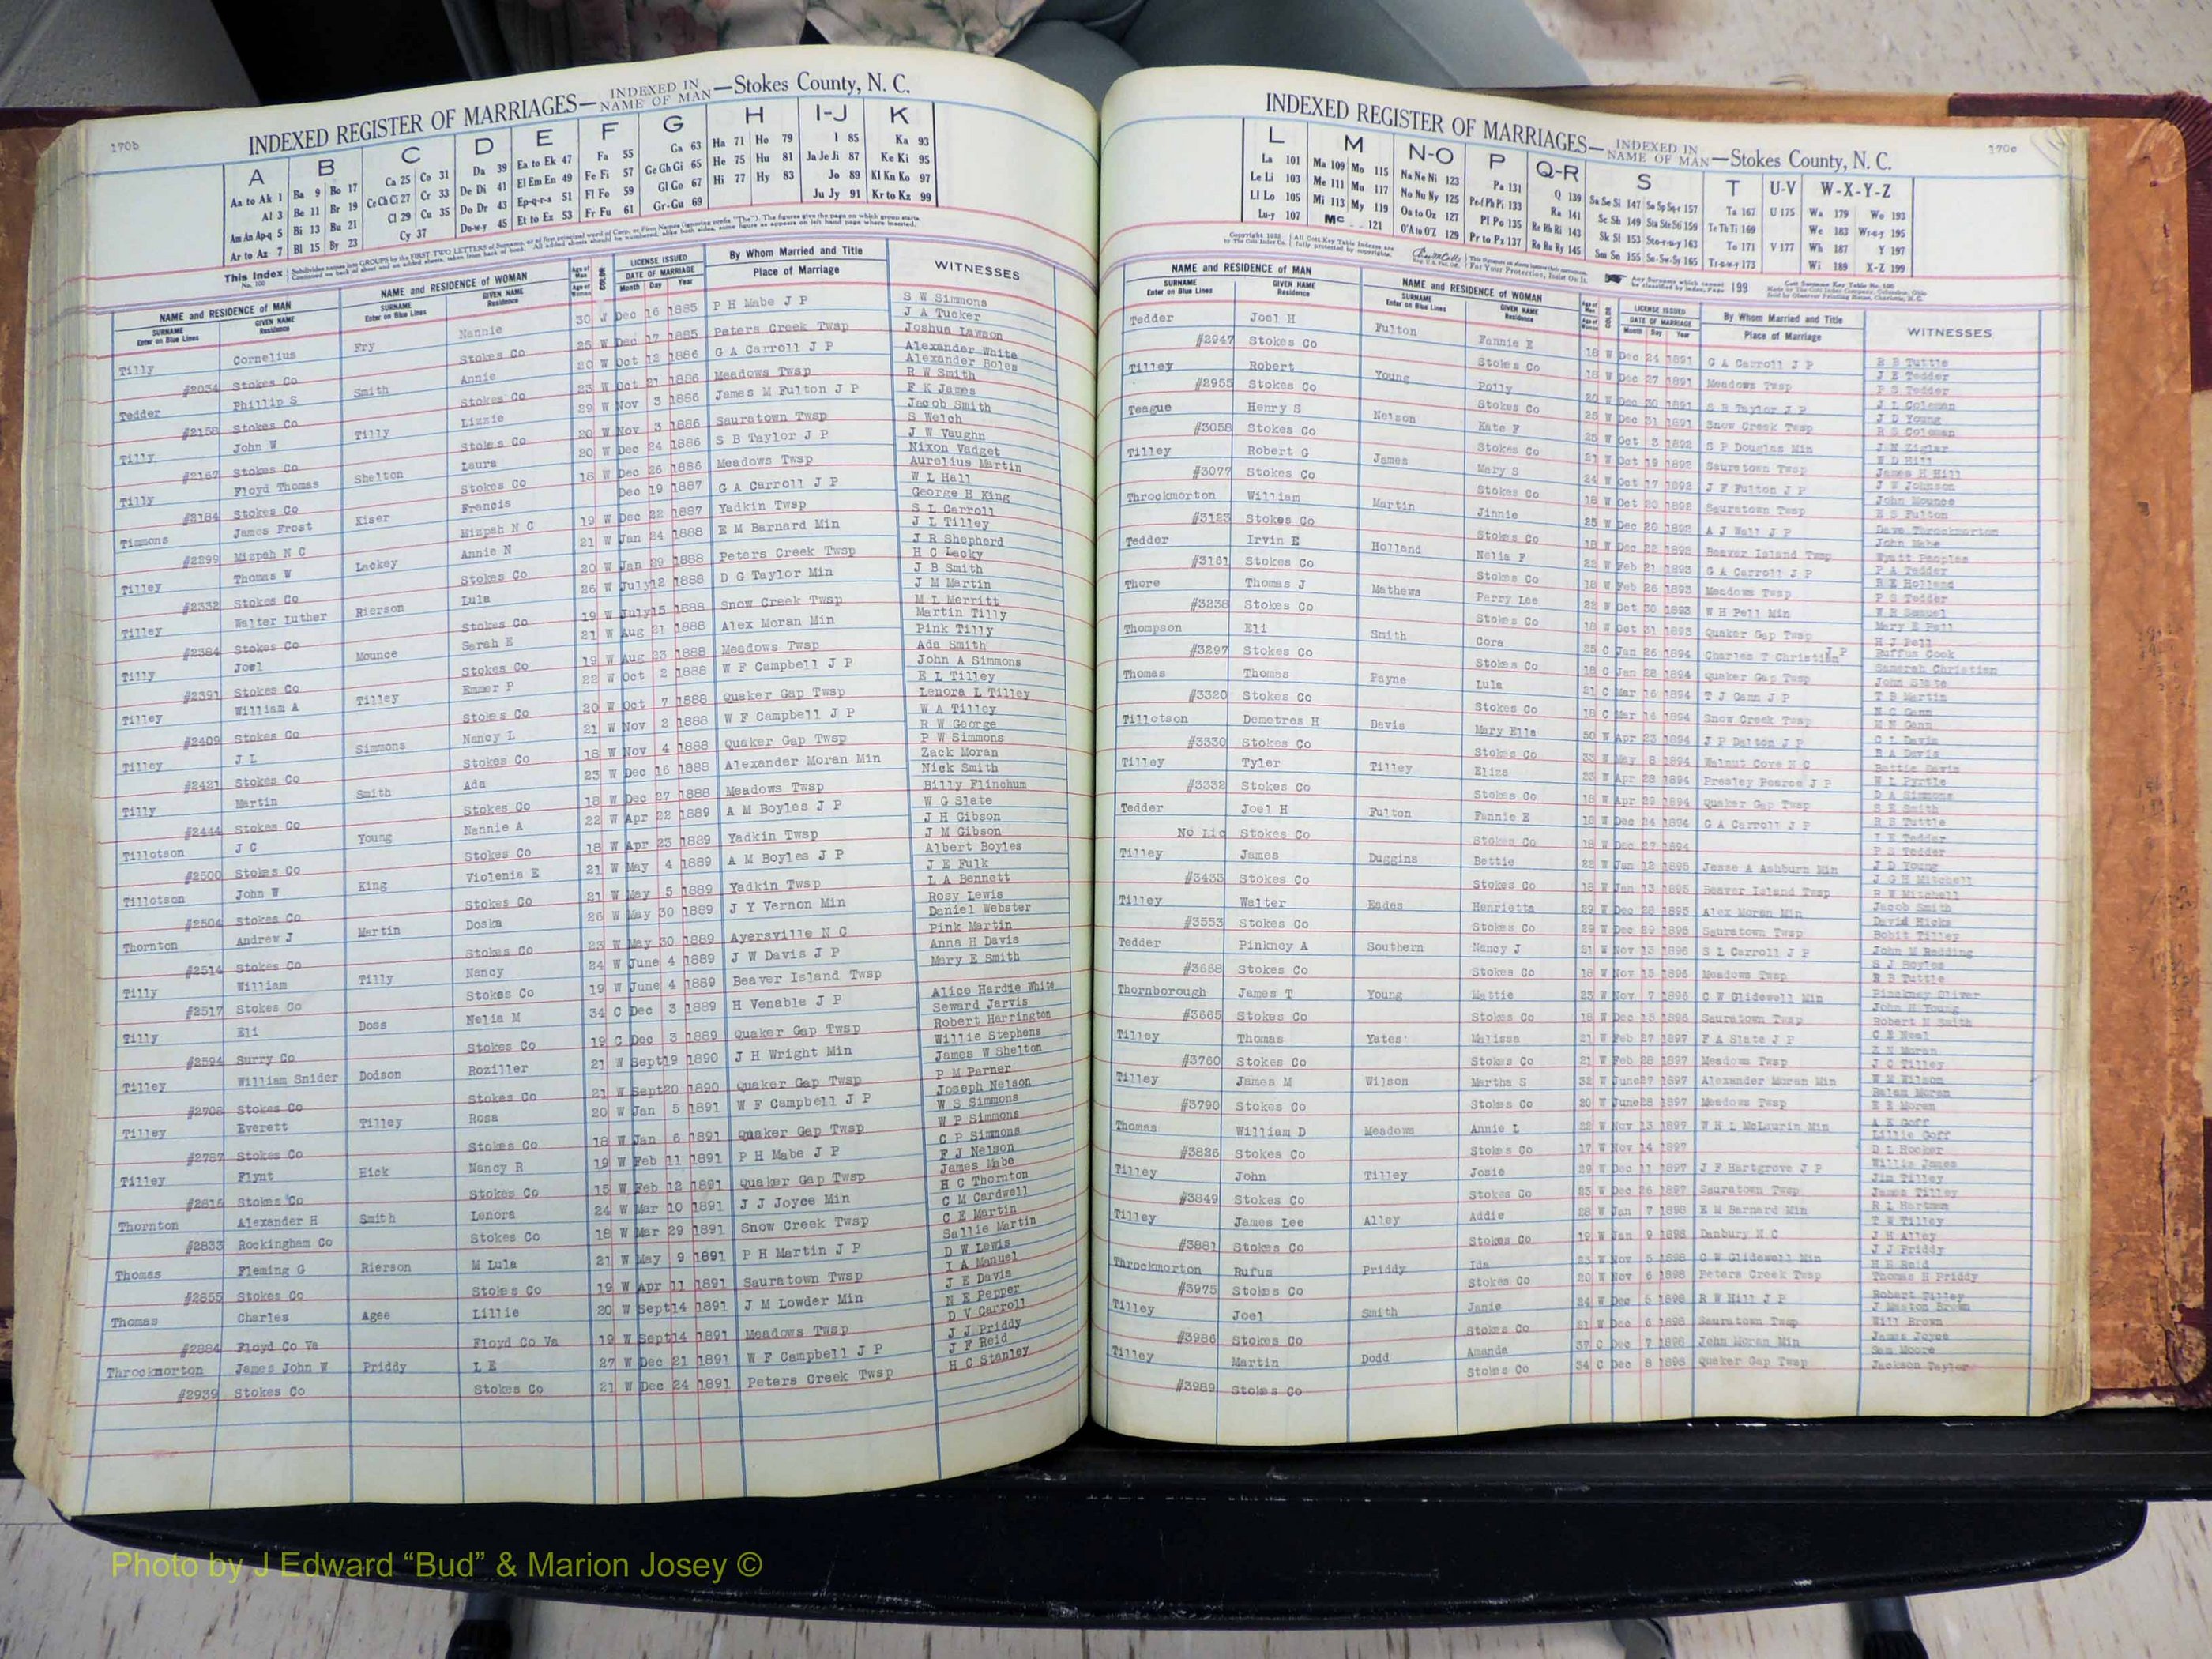 170b
INDEXED REGISTER OF MARRIAGES—INDEXED IN NAME OF MAN—Stokes County, N. C.
A B C D E F G H I-J K
Aa to Ak 1 Ba 9 Bo 17 Ca 25 Co 31 Da 39 Ea to Ek 47 Fa 55 Ga 63 Ha 71 Ho 79 I 85 Ka 93
Al 3 Be 11 Br 19 Ce Ch Ci 27 Cr 33 De Di 41 El Em En 49 Fe Fi 57 Ge Gh Gi 65 He 75 Hu 81 Ja Je Ji 87 Ke Ki 95
Am An Ap-q 5 Bi 13 Bu 21 Cl 29 Cu 35 Do Dr 43 Ep-q-r-s 51 Fl Fo 59 Gl Go 67 Hi 77 Hy 83 Jo 89 Kl Kn Ko 97
Ar to Az 7 Bl 15 By 23 Cy 37 Du-w-y 45 Et to Ez 53 Fr Fu 61 Gr-Gu 69 Ju Jy 91 Kr to Kz 99
This Index No. 100
NAME and RESIDENCE of MAN NAME and RESIDENCE of WOMAN Age of Man Age of Woman COLOR LICENSE ISSUED By Whom Married and Title WITNESSES
SURNAME Enter on Blue Lines GIVEN NAME Residence SURNAME Enter on Blue Lines GIVEN NAME Residence DATE OF MARRIAGE Month Day Year Place of Marriage
Tilly Cornelius Fry Nannie 30 Dec 16 1885 P H Mabe J P S W Simmons
J A Tucker
#2034 Stokes Co Stokes Co 25 W Dec 17 1885 Peters Creek Twsp Joshua Lawson
Tedder Phillip S Smith Annie 20 W Oct 12 1886 G A Carroll J P Alexander White
Alexander Boles
#2158 Stokes Co Stokes Co 23 W Oct 21 1886 Meadows Twsp R W Smith
Tilly John W Tilly Lizzie 29 W Nov 3 1886 James M Fulton J P F K James
Jacob Smith
#2167 Stokes Co Stokes Co 20 W Nov 3 1886 Sauratown Twsp S Welch
Tilly Floyd Thomas Shelton Laura 20 W Dec 24 1886 S B Taylor J P J W Vaughn
Nixon Vadget
#2184 Stokes Co Stokes Co 18 W Dec 26 1886 Meadows Twsp Aurelius Martin
Timmons James Frost Kiser Francis Dec 19 1887 G A Carroll J P W L Hall
George H King
#2299 Mizpah N C Mizpah N C 19 W Dec 22 1887 Yadkin Twsp S L Carroll
Tilley Thomas W Lackey Annie N 21 W Jan 24 1888 E M Barnard Min J L Tilley
J R Shepherd
#2332 Stokes Co Stokes Co 20 W Jan 29 1888 Peters Creek Twsp H C Lacky
Tilley Walter Luther Rierson Lula 26 W July 12 1888 D G Taylor Min J B Smith
J M Martin
#2384 Stokes Co Stokes Co 19 W July 15 1888 Snow Creek Twsp M L Merritt
Tilly Joel Mounce Sarah E 21 W Aug 21 1888 Alex Moran Min Martin Tilly
Pink Tilly
#2391 Stokes Co Stokes Co 19 W Aug 23 1888 Meadows Twsp Ada Smith
Tilley William A Tilley Emmer P 22 W Oct 2 1888 W F Campbell J P John A Simmons
E L Tilley
#2409 Stokes Co Stokes Co 20 W Oct 7 1888 Quaker Gap Twsp Lenora L Tilley
Tilley J L Simmons Nancy L 21 W Nov 2 1888 W F Campbell J P W A Tilley
R W George
#2421 Stokes Co Stokes Co 18 W Nov 4 1888 Quaker Gap Twsp P W Simmons
Tilly Martin Smith Ada 23 W Dec 16 1888 Alexander Moran Min Zack Moran
Nick Smith
#2444 Stokes Co Stokes Co 18 W Dec 27 1888 Meadows Twsp Billy Flinchum
Tillotson J C Young Nannie A 22 W Apr 22 1889 A M Boyles J P W G Slate
J H Gibson
#2500 Stokes Co Stokes Co 18 W Apr 23 1889 Yadkin Twsp J M Gibson
Tillotson John W King Violenia E 21 W May 4 1889 A M Boyles J P Albert Boyles
J E Fulk
#2504 Stokes Co Stokes Co 21 W May 5 1889 Yadkin Twsp L A Bennett
Thornton Andrew J Martin Doska 26 W May 30 1889 J Y Vernon Min Rosy Lewis
Daniel Webster
#2514 Stokes Co Stokes Co 23 W May 30 1889 Ayersville N C Pink Martin
Tilly William Tilly Nancy 24 W June 4 1889 J W Davis J P Anna H Davis
Mary E Smith
#2517 Stokes Co Stokes Co 19 W June 4 1889 Beaver Island Twsp
Tilly Eli Doss Nelia M 34 C Dec 3 1889 H Venable J P Alice Hardie White
Seward Jarvis
#2594 Surry Co Stokes Co 19 C Dec 3 1889 Quaker Gap Twsp Robert Harrington
Tilley William Snider Dodson Roziller 21 W Sept 19 1890 J H Wright Min Willie Stephens
James W Shelton
#2708 Stokes Co Stokes Co 21 W Sept 20 1890 Quaker Gap Twsp P M Parner
Tilley Everett Tilley Rosa 20 W Jan 5 1891 W F Campbell J P Joseph Nelson
W S Simmons
#2787 Stokes Co Stokes Co 18 W Jan 6 1891 Quaker Gap Twsp W P Simmons
Tilley Flynt Hick Nancy R 19 W Feb 11 1891 P H Mabe J P C P Simmons
F J Nelson
#2816 Stokes Co Stokes Co 15 W Feb 12 1891 Quaker Gap Twsp James Mabe
Thornton Alexander H Smith Lenora 24 W Mar 10 1891 J J Joyce Min H C Thornton
C M Cardwell
#2833 Rockingham Co Stokes Co 18 W Mar 29 1891 Snow Creek Twsp C E Martin
Thomas Fleming G Rierson M Lula 21 W May 9 1891 P H Martin J P Sallie Martin
D W Lewis
#2855 Stokes Co Stokes Co 19 W Apr 11 1891 Sauratown Twsp I A Manuel
Thomas Charles Agee Lillie 20 W Sept 14 1891 J M Lowder Min J E Davis
N E Pepper
#2884 Floyd Co Va Floyd Co Va 19 W Sept 14 1891 Meadows Twsp D V Carroll
Throckmorton James John W Priddy L E 27 W Dec 21 1891 W F Campbell J P J J Priddy
J F Reid
#2939 Stokes Co Stokes Co 21 W Dec 24 1891 Peters Creek Twsp H C Stanley
170c
INDEXED REGISTER OF MARRIAGES—INDEXED IN NAME OF MAN—Stokes County, N. C.
L M N-O P Q-R S T U-V W-X-Y-Z
La 101 Ma 109 Mo 115 Na Ne Ni 123 Pa 131 Q 139 Sa Se Si 147 So Sp Sq-r 157 Ta 167 U 175 Wa 179 Wo 193
Le Li 103 Me 111 Mu 117 No Nu Ny 125 Pe-f Ph Pi 133 Ra 141 Sc Sh 149 Sta Ste Sti 159 Te Th Ti 169 We 183 Wr-u-y 195
Ll Lo 105 Mi 113 My 119 Oa to Oz 127 Pl Po 135 Re Rh Ri 143 Sk Sl 153 Sto-r-u-y 163 To 171 V 177 Wh 187 Y 197
Lu-y 107 Mc 121 O'A to O'Z 129 Pr to Pz 137 Ro Ru Ry 145 Sm Sn 155 Su-Sw-Sy 165 Tr-u-w-y 173 Wi 189 X-Z 199
NAME and RESIDENCE of MAN NAME and RESIDENCE of WOMAN Age of Man Age of Woman COLOR LICENSE ISSUED By Whom Married and Title WITNESSES
SURNAME Enter on Blue Lines GIVEN NAME Residence SURNAME Enter on Blue Lines GIVEN NAME Residence DATE OF MARRIAGE Month Day Year Place of Marriage
Tedder Joel H Fulton Fannie E 18 W Dec 24 1891 G A Carroll J P R B Tuttle
J E Tedder
#2947 Stokes Co Stokes Co 18 W Dec 27 1891 Meadows Twsp P S Tedder
Tilley Robert Young Polly 20 W Dec 30 1891 S B Taylor J P J L Coleman
J D Young
#2955 Stokes Co Stokes Co 25 W Dec 31 1891 Snow Creek Twsp R S Coleman
Teague Henry S Nelson Kate F 25 W Oct 3 1892 S P Douglas Min J H Zigler
W D Hill
#3058 Stokes Co Stokes Co 21 W Oct 19 1892 Sauratown Twsp James H Hill
Tilley Robert G James Mary S 24 W Oct 17 1892 J F Fulton J P J W Johnson
John Mounce
#3077 Stokes Co Stokes Co 18 W Oct 20 1892 Sauratown Twsp E S Fulton
Throckmorton William Martin Jinnie 25 W Dec 20 1892 A J Wall J P Dave Throckmorton
John Mabe
#3123 Stokes Co Stokes Co 18 W Dec 22 1892 Beaver Island Twsp Wyatt Peoples
Tedder Irvin E Holland Nelia F 22 W Feb 21 1893 G A Carroll J P P A Tedder
R E Holland
#3161 Stokes Co Stokes Co 18 W Feb 26 1893 Meadows Twsp P S Tedder
Thore Thomas J Mathews Parry Lee 22 W Oct 30 1893 W H Pell Min W R Samuel
Mary E Pell
#3238 Stokes Co Stokes Co 18 W Oct 31 1893 Quaker Gap Twsp H T Pell
Thompson Eli Smith Cora 25 C Jan 26 1894 Charles T Christian J P Ruffus Cook
Samarah Christian
#3297 Stokes Co Stokes Co 18 C Jan 28 1894 Quaker Gap Twsp John Slate
Thomas Thomas Payne Lula 21 C Mar 16 1894 T J Gann J P T B Martin
N C Gann
#3320 Stokes Co Stokes Co 18 C Mar 16 1894 Snow Creek Twsp M N Gann
Tillotson Demetres H Davis Mary Ella 50 W Apr 23 1894 J P Dalton J P C L Davis
R A Davis
#3330 Stokes Co Stokes Co 33 W May 8 1894 Walnut Cove N C Bettie Davis
Tilley Tyler Tilley Eliza 23 W Apr 28 1894 Presley Pearce J P W L Pyrtle
D A Simmons
#3332 Stokes Co Stokes Co 18 W Apr 29 1894 Quaker Gap Twsp S E Smith
Tedder Joel H Fulton Fannie E 18 W Dec 24 1894 G A Carroll J P R B Tuttle
J E Tedder
No Lic Stokes Co Stokes Co 18 W Dec 27 1894 P S Tedder
Tilley James Duggins Bettie 22 W Jan 12 1895 Jesse A Ashburn Min J D Young
J G H Mitchell
#3433 Stokes Co Stokes Co 18 W Jan 13 1895 Beaver Island Twsp R W Mitchell
Tilley Walter Eades Henrietta 29 W Dec 28 1895 Alex Moran Min Jacob Smith
David Hicks
#3553 Stokes Co Stokes Co 29 W Dec 29 1895 Sauratown Twsp Bobit Tilley
Tedder Pinkney A Southern Nancy J 21 W Nov 13 1896 S L Carroll J P John M Redding
S J Boyles
#3668 Stokes Co Stokes Co 18 W Nov 15 1896 Meadows Twsp R B Tuttle
Thornborough James T Young Mattie 23 W Nov 7 1896 C W Glidewell Min Pinckney Oliver
John H Young
#3665 Stokes Co Stokes Co 18 W Dec 15 1896 Sauratown Twsp Robert N Smith
Tilley Thomas Yates Malissa 21 W Feb 27 1897 F A Slate J P C E Neal
Moran
#3760 Stokes Co Stokes Co 21 W Feb 28 1897 Meadows Twsp J C Tilley
Tilley James M Wilson Martha S 32 W June 27 1897 Alexander Moran Min W M Wilson
Salem Moran
#3790 Stokes Co Stokes Co 20 W June 28 1897 Meadows Twsp E E Moran
Thomas William D Meadows Annie L 22 W Nov 13 1897 W H L McLaurin Min A E Goff
Lillie Goff
#3826 Stokes Co Stokes Co 17 W Nov 14 1897 D L Hooker
Tilley John Tilley Josie 29 W Dec 11 1897 J F Hartgrove J P Willie James
Jim Tilley
#3849 Stokes Co Stokes Co 23 W Dec 26 1897 Sauratown Twsp James Tilley
Tilley James Lee Alley Addie 28 W Jan 7 1898 E M Barnard Min R L Hartman
T W Tilley
#3881 Stokes Co Stokes Co 19 W Jan 9 1898 Danbury N C J H Alley
Throckmorton Rufus Priddy Ida 23 W Nov 5 1898 C W Glidewell Min J J Priddy
H H Reid
#3975 Stokes Co Stokes Co 20 W Nov 6 1898 Peters Creek Twsp Thomas H Priddy
Tilley Joel Smith Janie 24 W Dec 5 1898 R W Hill J P Robert Tilley
J Maston Brown
#3986 Stokes Co Stokes Co 21 W Dec 6 1898 Sauratown Twsp Will Brown
Tilley Martin Dodd Amanda 37 C Dec 7 1898 John Moran Min James Joyce
Sam Moore
#3989 Stokes Co Stokes Co 34 C Dec 8 1898 Quaker Gap Twsp Jackson Taylor
Photo by J Edward “Bud” & Marion Josey ©